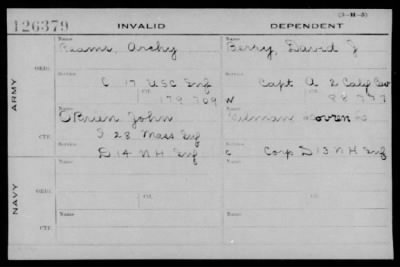 (3-H-5)
126379 INVALID DEPENDENT
Name Name
Reams, Archy Berry, David J
ORIG. Service Service
C 17 USC Inf Capt A 2 Calif Cav
Ctf. Ctf.
179 709 W 88 777
ARMY
Name Name
O'Brien John Gilman
CTF. Service
S 28 Mass Inf
D 14 N H Inf C Corp D 13 N H Inf
Name Name
ORIG. Service Service
Ctf. Ctf.
NAVY
Name Name
CTF. Service